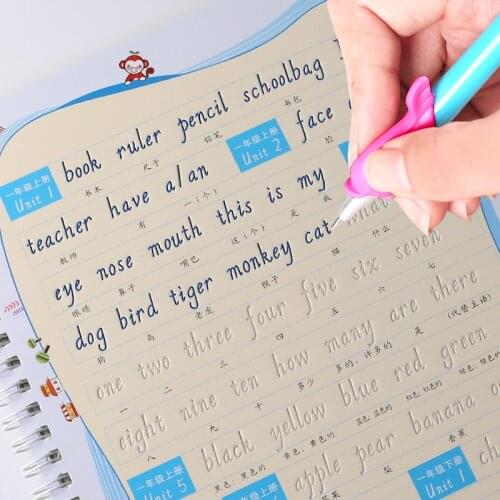 一年级上册 Unit 1 book ruler pencil schoolbag
书本 尺子 铅笔 书包
teacher have a/an 一年级上册 Unit 2 face
教师 有 一(个) 脸
eye nose mouth this is my
眼睛 鼻子 嘴巴 这(个) 是 我
dog bird tiger monkey cat what
狗 鸟 老虎 猴子 猫 什么
one two three four five six seven
一 二 三 四 五 六 七
eight nine ten how many are there
八 九 十 多少 多的;许多的 是 (代替主语)
一年级上册 Unit 5 black yellow blue red green
黑色;黑色的 黄色;黄色的 蓝色;蓝色的 红色;红色的 绿色;绿色的
apple pear banana
梨 香蕉
一年级下册 Unit 1 ch